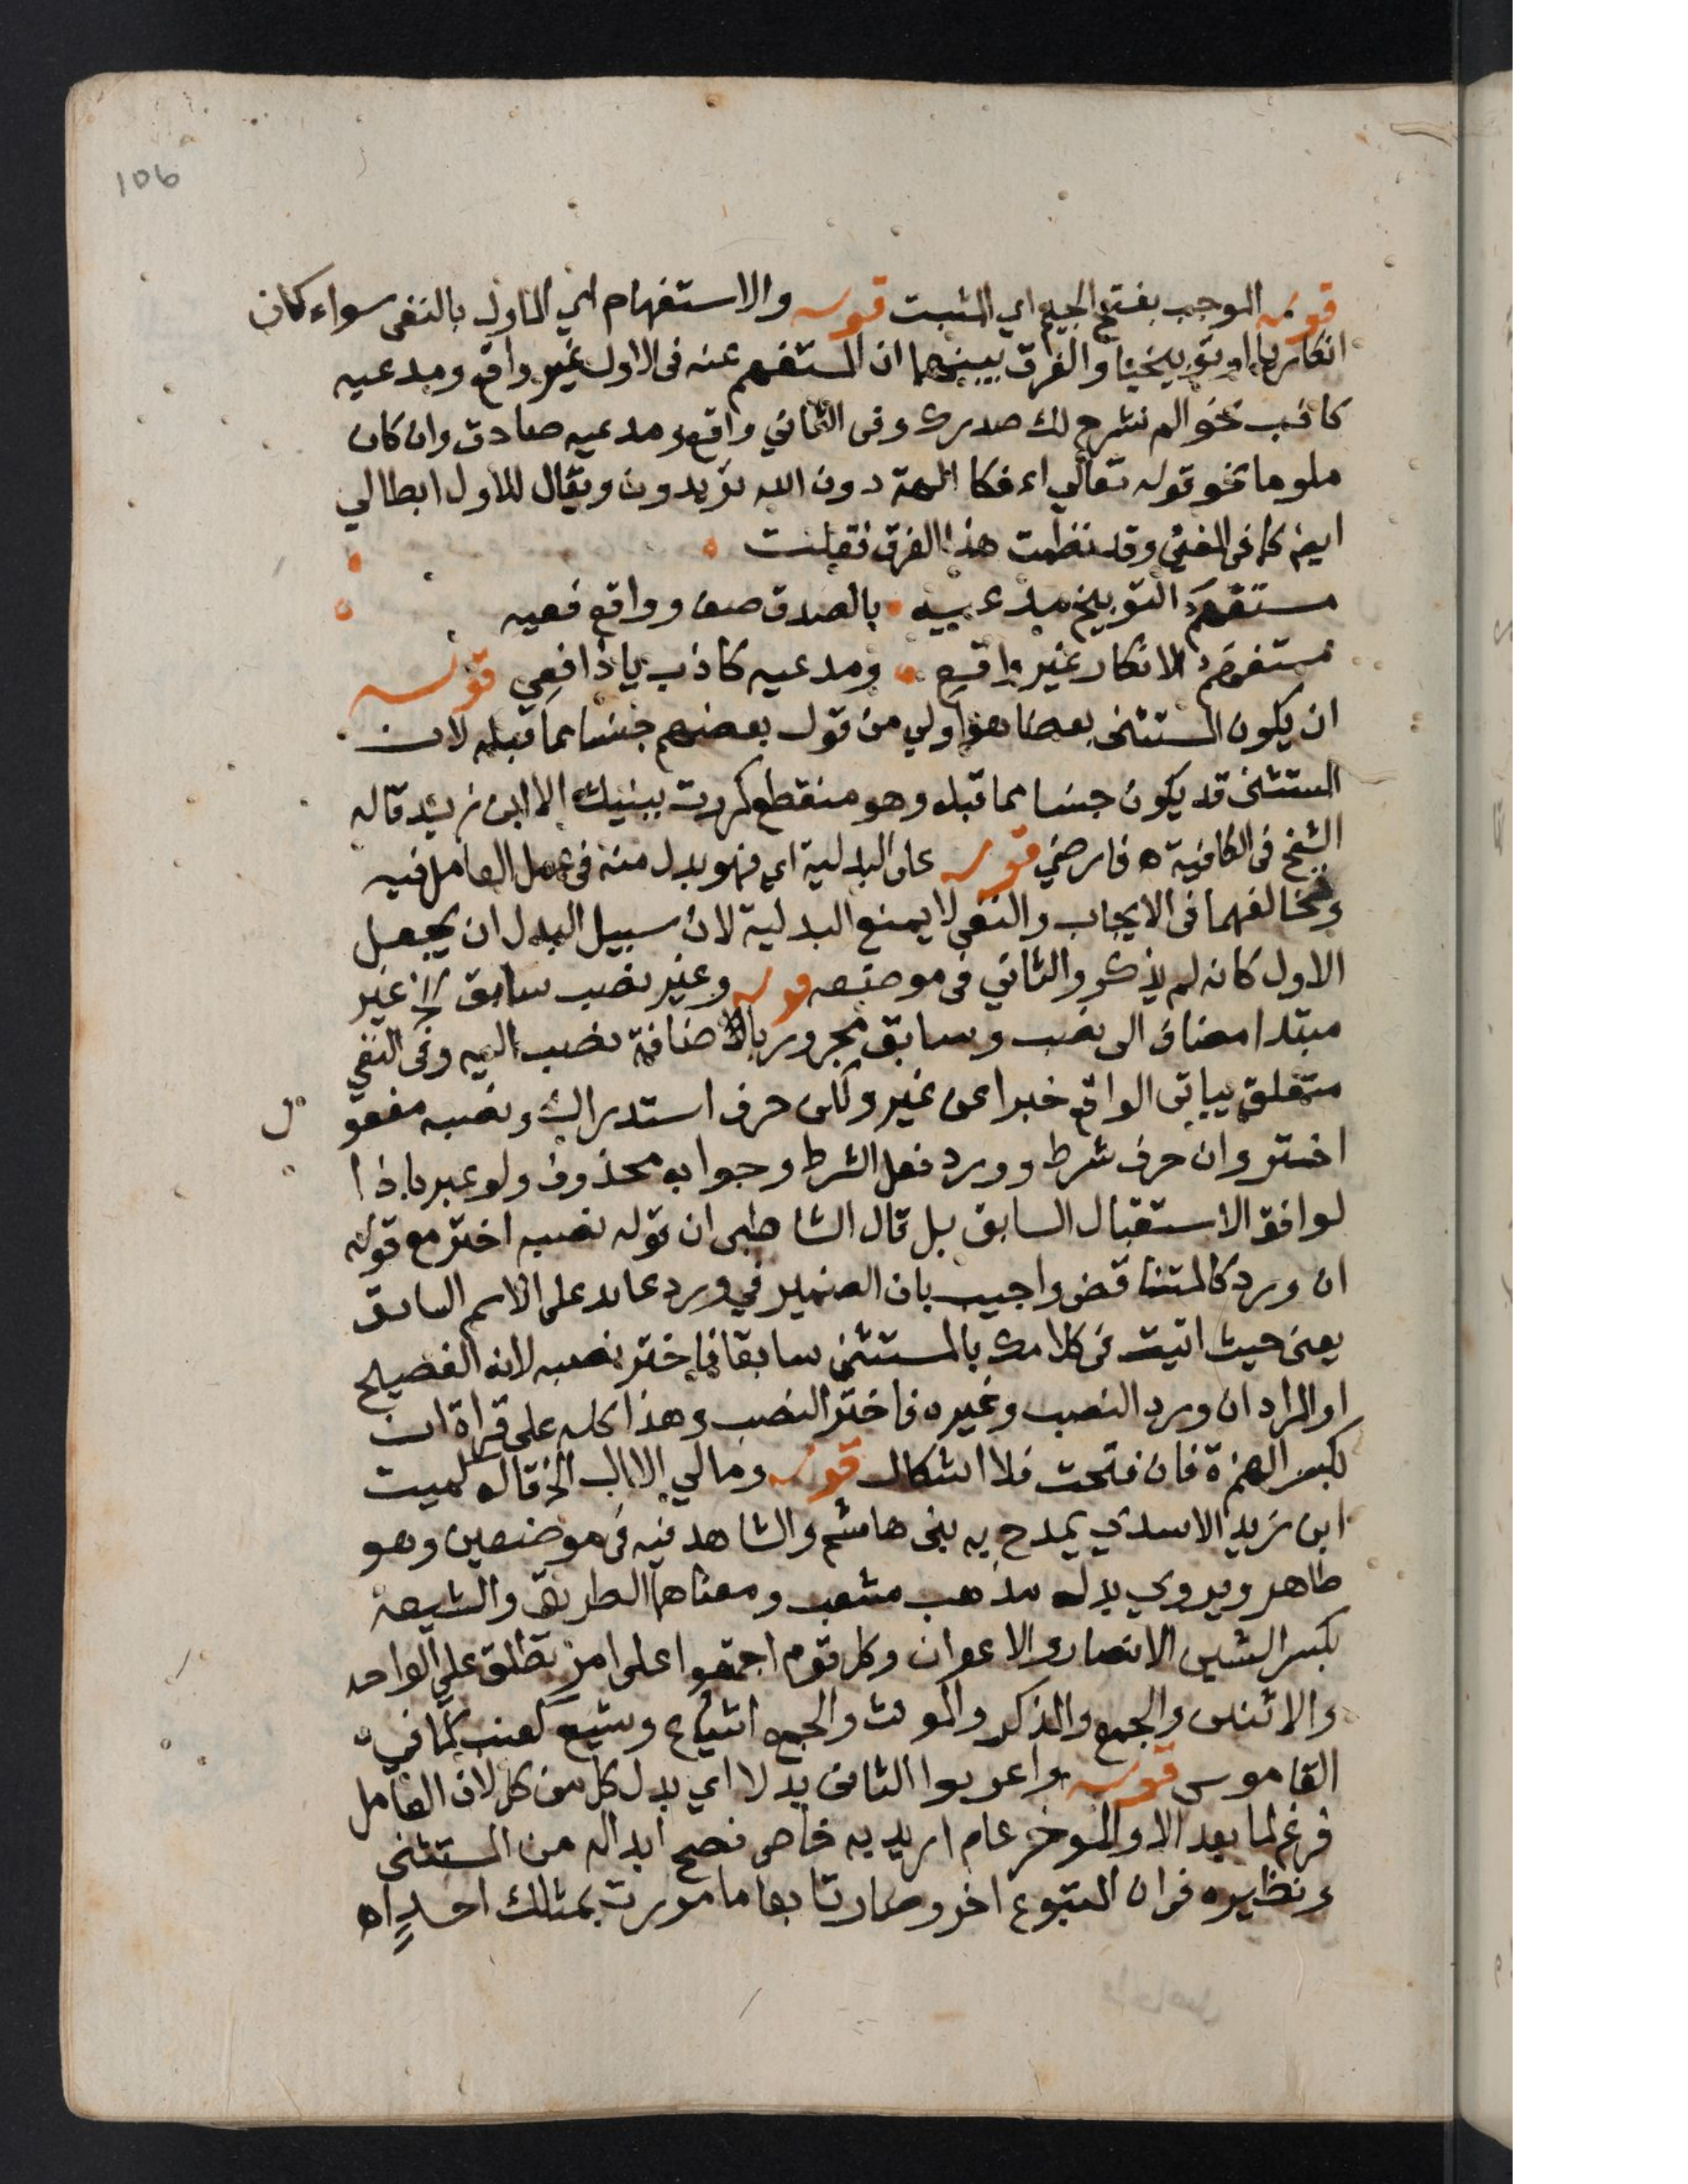 106
قوله الموجب بفتح الجيم اي المثبت قوله والاستفهام اي الماول بالنفى سواء كان
انكاريا او توبيخيا والفرق بينهما ان المستفهم عنه فى الاول غير واقع ومدعيه
كاذب نحو الم نشرح لك صدرك وفى الثاني واقع ومدعيه صادق وان كان
ملوما نحو قوله تعالي اءفكا الهة دون الله تريدون ويقال للاول ابطالي
ايضا كما فى المغنى وقد نظمت هذا الفرق فقلت
مستفهم التوبيخ مدعيه بالصدق صف وواقع فعيه
مستفهم الانكار غير واقع ومدعيه كاذب يا ذا فعي قوله
ان يكون المستثنى بعضا هو اولي من قول بعضهم جنسا مما قبله لان
المستثنى قد يكون جنسا مما قبله وهو منقطع كررت ببنيك الا ابن زيد قاله
الشيخ فى الكافية ه فارضي قوله على البدلية اي فهو بدل منه فى عمل العامل فيه
وتخالفهما فى الايجاب والنفي لا يمنع البدلية لان سبيل البدل ان يجعل
الاول كانه لم يذكر والثاني فى موضعه قوله وغير نصب سابق الخ غير
مبتدا مضاف الى نصب وسابق مجرور بالاضافة نصب اليه وفى النفي
متعلق بياتى الواقع خبرا عن غير ولكن حرف استدراك ونصبه مفعول
اختر وان حرف شرط وورد فعل الشرط وجوابه محذوف ولو عبر باذا
لوافق الاستقبال السابق بل قال الشاطبى ان قوله نصبه اختر مع قوله
ان ورد كالمتناقض واجيب بان الضمير في ورد عايد على الاسم السابق
يعنى حيث اتيت فى كلامك بالمستثنى سابقا فاختر نصبه لانه الفصيح
او المراد ان ورد النصب وغيره فاختر النصب وهذا كله على قراة ان
بكسر الهمزة فان فتحت فلا اشكال قوله ومالي الا ال الخ قاله كميت
ابن زيد الاسدي يمدح به بنى هاشم والشاهد فيه فى موضعين وهو
ظاهر ويروي بدله مذهب مشعب ومعناهما الطريق والشيعة
بكسر الشين الانصار والاعوان وكل قوم اجتمعوا على امر تطلق على الواحد
والاثنين والجمع والمذكر والمونث والجمع اشياع وشيع كعنب كما في
القاموس قوله واعربوا الثانى بدلا اي بدل كل من كل لان العامل
فرغ لما بعد الا والموخر عام اريد به خاص فصح ابداله من المستثنى
ونظيره فى ان المتبوع اخر وصار تابعا ما مررت بمثلك احد اه